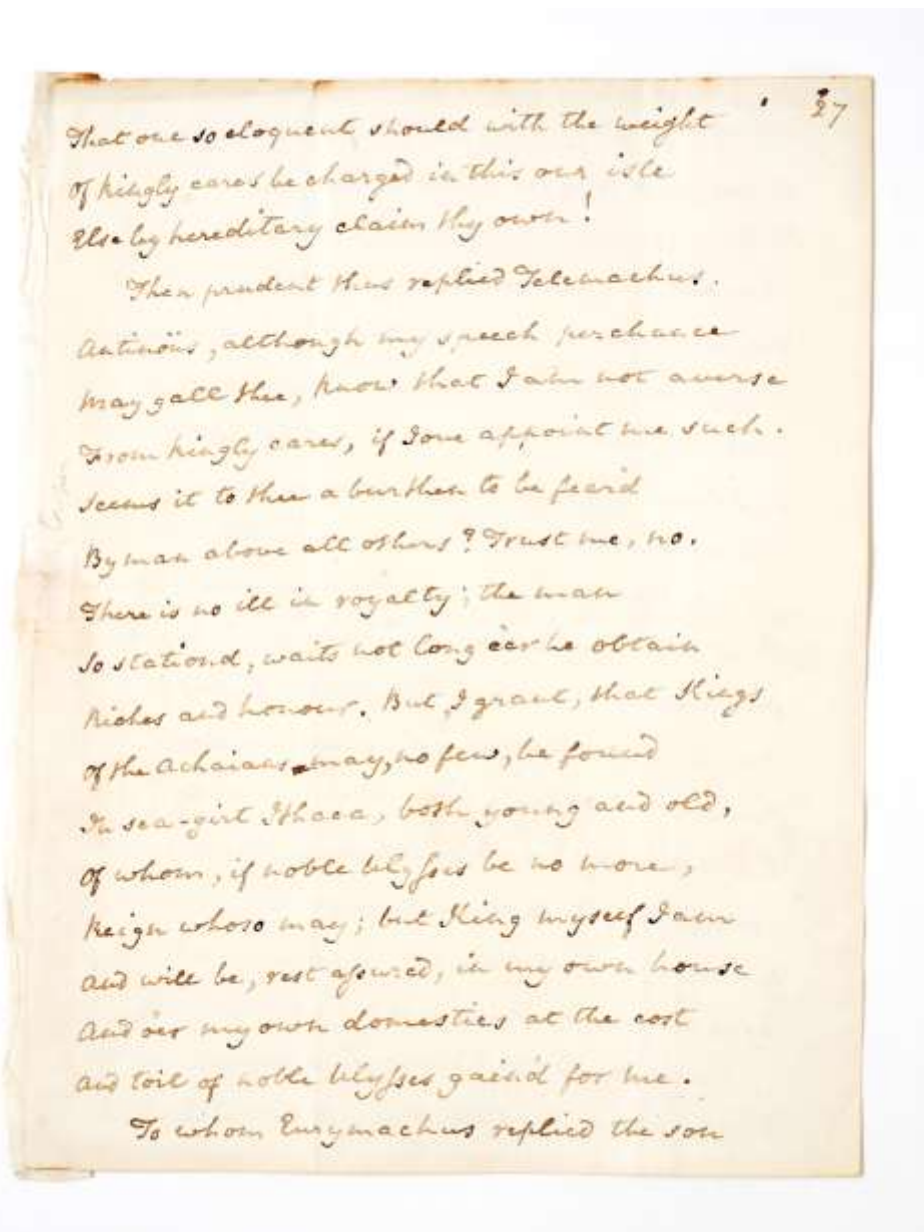 27
That one so eloquent should with the weight
Of kingly cares be charged in this our isle
Else by hereditary claim thy own!
Then prudent thus replied Telemachus.
Antinoüs, although my speech perchance
May gall thee, know that I am not averse
From kingly cares, if Jove appoint me such.
Seems it to thee a burthen to be fear'd
By man above all others? Trust me, no.
There is no ill in royalty; the man
So station'd, waits not long e'er he obtain
Riches and honour. But I grant, that Kings
Of the Achaians may, no few, be found
In sea-girt Ithaca, both young and old,
Of whom, if noble Ulysses be no more,
Reign whoso may; but King myself I am
And will be, rest assured, in my own house
And o'er my own domestics at the cost
And toil of noble Ulysses gain'd for me.
To whom Eurymachus replied the son